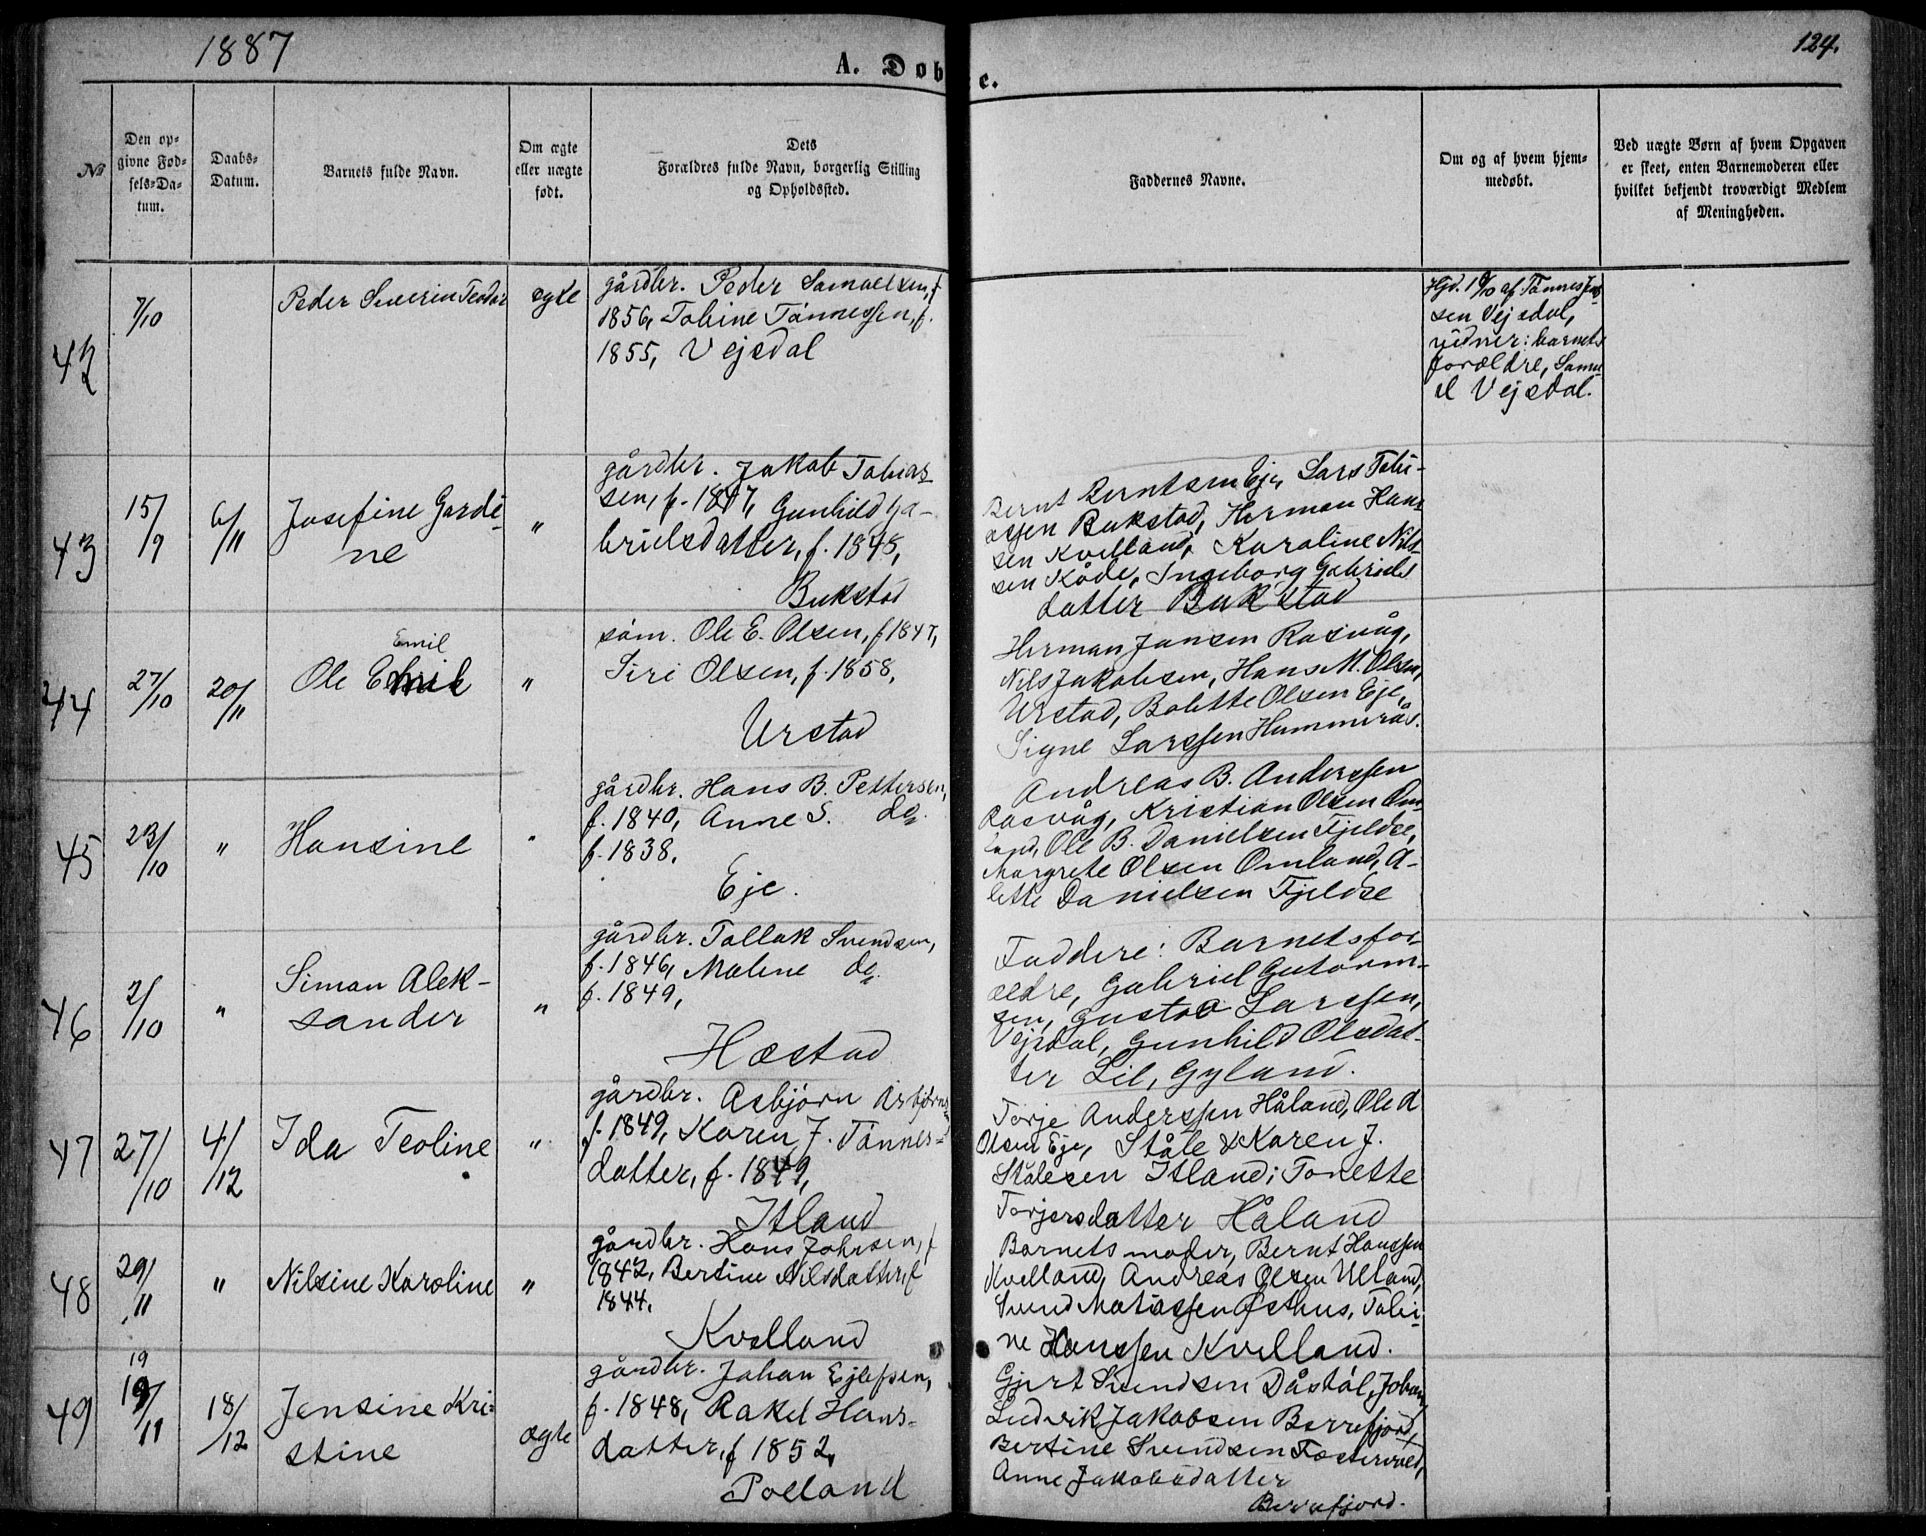 1887
A. Døbte.
124.
No
Den opgivne Fødsels-Datum.
Daabs-Datum.
Barnets fulde Navn.
Om ægte eller uægte født.
Dets Forældres fulde Navn, borgerlig Stilling og Opholdssted.
Faddernes Navne.
Om og af hvem hjemmedøbt.
Ved uægte Børn af hvem Opgaven er skeet, enten Barnemoderen eller hvilket bekjendt troværdigt Medlem af Meningheden.
42
7/10
Peder Severin Teodor
ægte
gårdbr. Peder Samuelsen, f.
1856, Tobine Tønnessen, f.
1855, Vejsdal
Hjd. af Tønnes
sen Vejsdal,
vidner: barnets
forældre, Samu-
el Vejsdal.
43
15/9
6/11
Josefine Gardi-
ne
"
gårdbr. Jakob Tobias-
sen, f. 1847, Gunhild Ga-
brielsdatter, f. 1848,
Bukstad
Bernt Berntsen Eje, Lars Tobi-
assen Bukstad, Herman Han-
sen Kvelland, Karoline Nils-
sen Kåde, Ingeborg Gabriels
datter Bukstad
44
27/10
20/11
Emil
Ole Emil
"
søm. Ole E. Olsen, f 1847,
Siri Olsen, f. 1858,
Urstad
Herman Jansen Rasvåg,
Nils Jakobsen, Hans M. Olsen,
Urstad, Bolette Olsen Eje,
Signe Larssen Hummerås.
45
23/10
"
Hansine
"
gårdbr. Hans B. Pettersen,
f. 1840, Anne S. do.
f. 1838.
Eje.
Andreas B. Anderssen
Rasvåg, Kristian Olsen Om-
land, Ole B. Danielsen Fjeldse,
Margrete Olsen Omland, A-
lette Danielsen Fjeldse
46
2/10
"
Siman Alek-
sander
"
gårdbr. Tollak Svendsen,
f. 1846, Malene do.
f. 1849,
Hæstad
Faddere: Barnets for-
ældre, Gabriel Gutorm-
sen, Gustav Larssen,
Vejsdal, Gunhild Olsdat-
ter Lil, Gyland.
47
27/10
4/12
Ida Teoline
"
gårdbr. Asbjørn Asbjørns
f. 1849, Karen J. Tønnes-
datter, f. 1849,
Itland
Torje Anderssen Håland, Ole A
Olsen Eje, Ståle & Karen J.
Stålesen Itland; Tonette
Torjersdatter Håland
48
29/11
"
Nilsine Karoline
"
gårdbr. Hans Johnsen, f
1842, Bertine Nilsdatter, f
1844.
Kvelland
Barnets moder, Bernt Hanssen
Kvelland, Andreas Olsen Ulland,
Svend Matiassen Østhus, Tobi-
ne Hanssen Kvelland.
49
19
19/11
18/12
Jensine Kri-
stine
ægte
gårdbr. Johan Ejlefsen,
f. 1848, Rakel Hans-
datter, f 1852,
Polland
Gjert Svendsen Dåstøl, Johan
Ludvik Jakobsen Berrefjord,
Bertine Svendsen Fostervold,
Anne Jakobsdatter
Berrefjord.